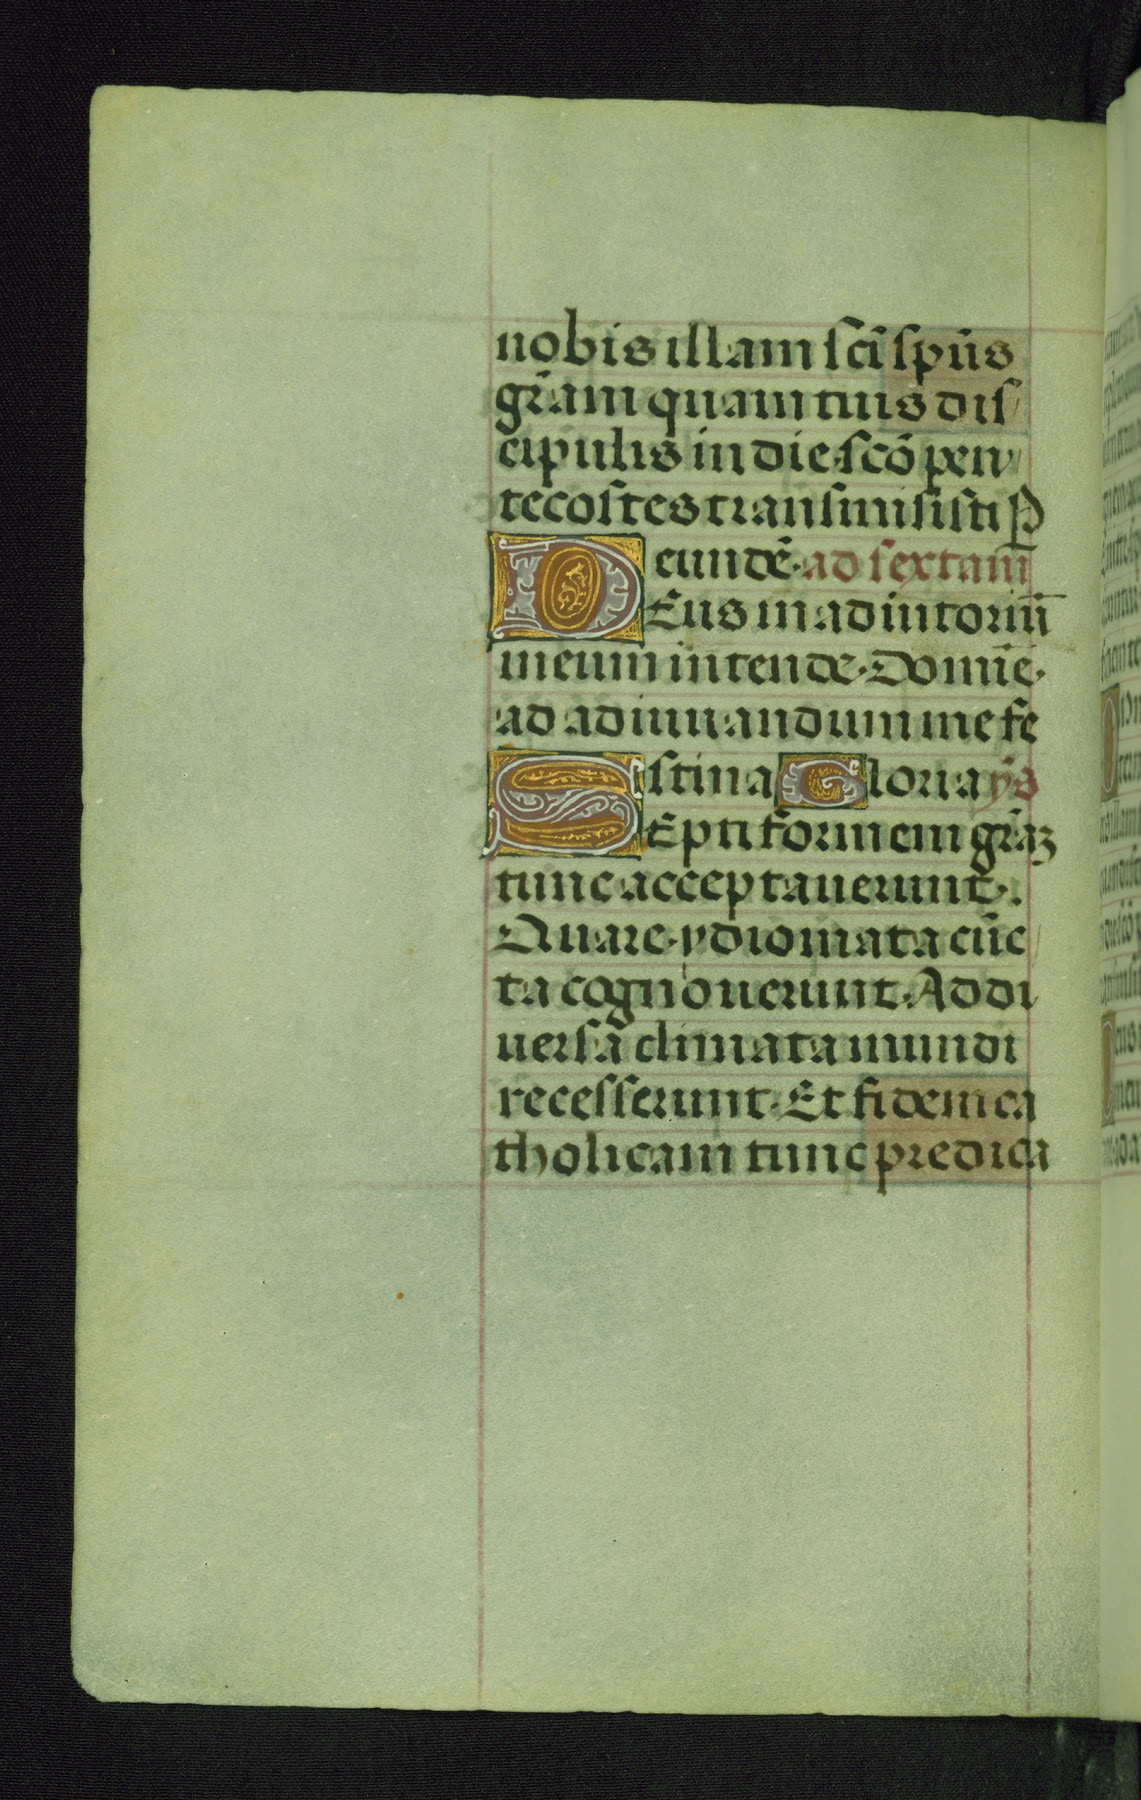 nobis illam scī spūs
grām quam tuis dis
cipulis in die scō pen
tecostes transmisisti P
eundē ad sextam
DEus in adiutoriū
meum intende. Domīe.
ad adiuuandum me fe
stina Gloria ȳs
SEptiformem grāz
tunc acceptauerunt.
Quare ydiomata cūc
ta cognouerunt. Ad di
uersā climata mundi
recesserunt. Et fidem ca
tholicam tunc predica